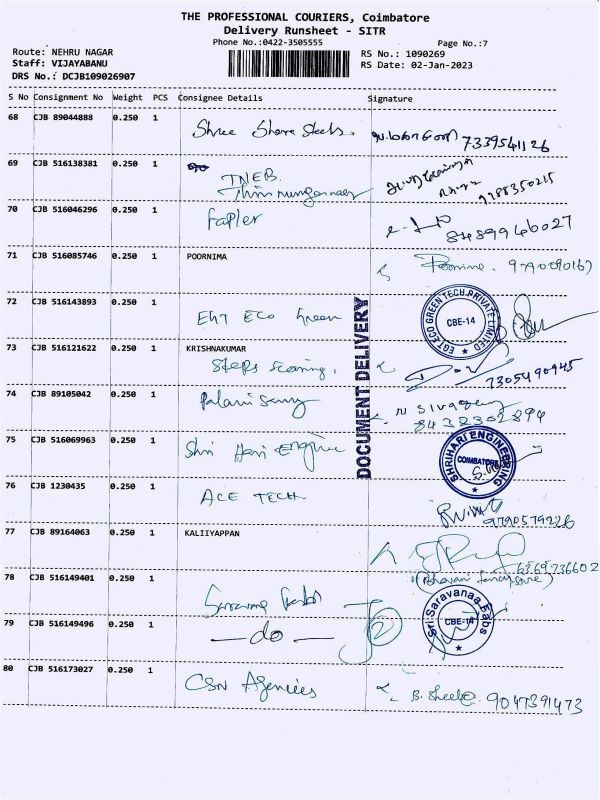 THE PROFESSIONAL COURIERS, Coimbatore
Delivery Runsheet - SITR
Phone No.:0422-3505555
Page No.:7
Route: NEHRU NAGAR
RS No.: 1090269
Staff: VIJAYABANU
RS Date: 02-Jan-2023
DRS No.: DCJB109026907
S No Consignment No Weight PCS Consignee Details Signature
68 CJB 89044888 0.250 1 Shree Share Steels. 7339541126
69 CJB 516138381 0.250 1 TNEB. 9788350215
70 CJB 516046296 0.250 1 Fapler 8489946027
71 CJB 516085746 0.250 1 POORNIMA Poornima.
72 CJB 516143893 0.250 1 EGT Eco Green
EGT ECO GREEN TECH PRIVATE LIMITED
CBE-14
DOCUMENT DELIVERY
73 CJB 516121622 0.250 1 KRISHNAKUMAR
Steps 7305490945
74 CJB 89105042 0.250 1 Palanisamy
8438302894
75 CJB 516069963 0.250 1 Shri Hari Engine
SHRIHARI ENGINEERING
COIMBATORE
76 CJB 1230435 0.250 1 ACE TECH. 9790579226
77 CJB 89164063 0.250 1 KALIIYAPPAN 6369736602
78 CJB 516149401 0.250 1
79 CJB 516149496 0.250 1 — do —
Sri Saravanaa Fabs
CBE-14
80 CJB 516173027 0.250 1 CSN Agencies B. Sheeba 9047391473